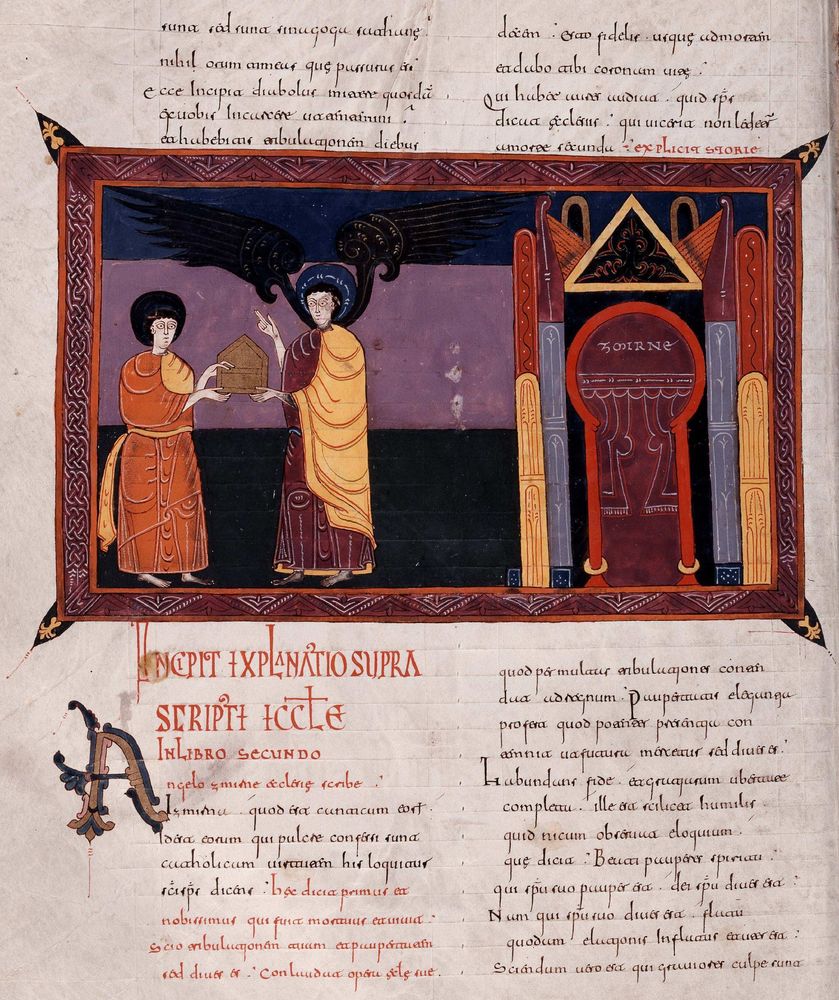 sunt sed sunt sinagoga sathane
nihil orum timeas que passurus es
Ecce Incipiet diabolus mittere quosdā
ex uobis In carcere ut temtemini
et habebitis tribulationem diebus
decem : Esto fidelis usque ad mortem
et dabo tibi coronam uite
Qui habet aures audiat quid sp̄s
dicat eclesiis : qui uicerit non ledetr
a morte secunda : EXPLICIT STORIE
ZMIRNE
INCIPIT EXPLANATIO SUPRA
SCRIPTE ECCLE
IN LIBRO SECUNDO
Angelo zmirne eclesie scribe
Izmirna quod est canticum
Idest eorum qui pulcre confessi sunt
catholicam his loquitur
sc̄s sp̄s dicens : hec dicit primus et
nobissimus qui fuit mortuus et uiuit
Scio tribulationem tuam et paupertatem
sed dives es : Conlaudat opera
quod per multas tribulationes
ad regnum : Paupertatis
profert quod
sed dives es
habundans fide et gratiarum ubertate
completa : Ille est scilicet humilis
quid nicum obserua eloquium
que dicit : Beati pauperes spiritu
qui spū suo pauper est dei spū dives est
Nam qui spū suo dives est
quodam elationis Inflatus
Sciendum uero est qui grauiores culpe sunt